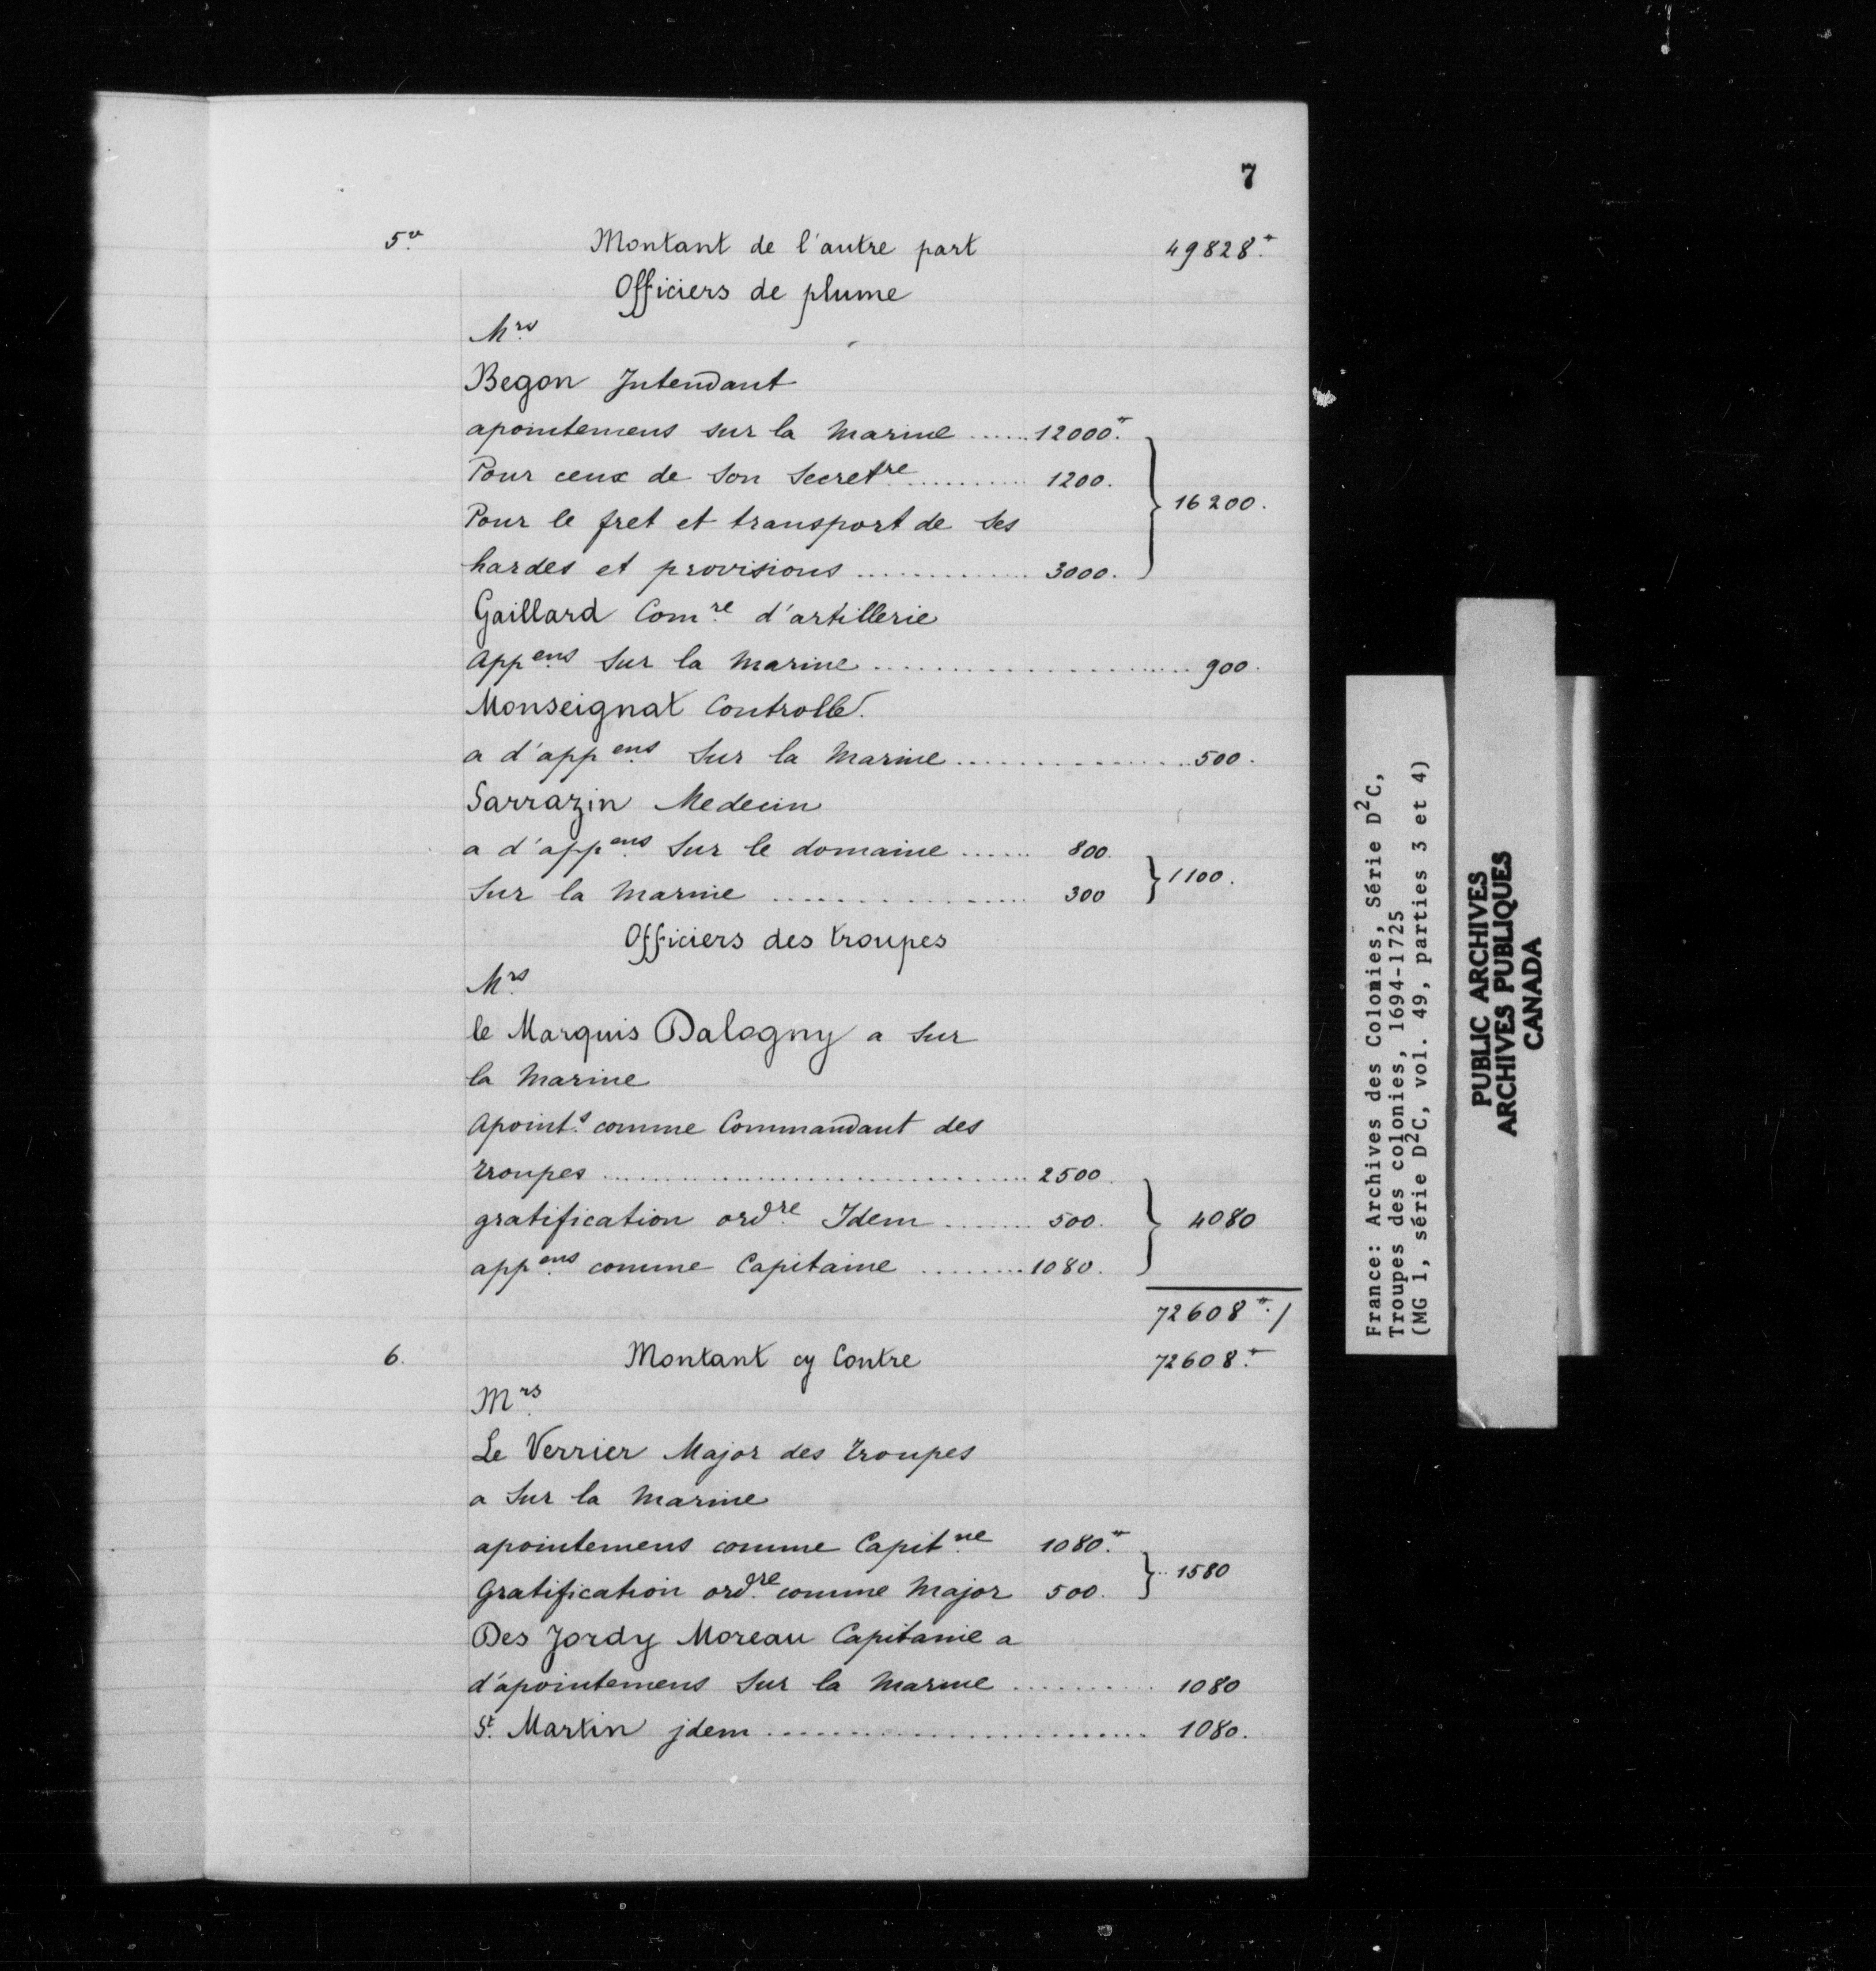 7
5.v Montant de l'autre part 49828.#
Officiers de plume
Mrs
Begon Intendant
apointemens sur la Marine ...... 12000.#
Pour ceux de son Secretre ............ 1200.
} 16200.
Pour le fret et transport de ses
hardes et provisions .............. 3000.
Gaillard Comre d'artillerie
Appens sur la Marine ........................ 900.
Monseignat Controlle.
a d'appens sur la Marine .................. 500.
Sarrazin Medecin
a d'appens sur le domaine ...... 800.
} 1100.
Sur la Marine .................. 300
Officiers des troupes
Mrs
le Marquis Dalogny a sur
la Marine
Apoints comme Commandant des
troupes .............................. 2500.
gratification ordre Idem ........ 500. } 4080
appens comme Capitaine ......... 1080.
72608#./
6. Montant cy Contre 72608.#
Mrs
Le Verrier Major des troupes
a sur la Marine
apointemens comme Capitne 1080.#
} 1580
Gratification ordre comme Major 500.
Des Jordy Moreau Capitaine a
d'apointemens sur la Marine .......... 1080
St. Martin jdem .......................... 1080.
France: Archives des Colonies, Série D2C,
Troupes des colonies, 1694-1725
(MG 1, série D2C, vol. 49, parties 3 et 4)
PUBLIC ARCHIVES
ARCHIVES PUBLIQUES
CANADA